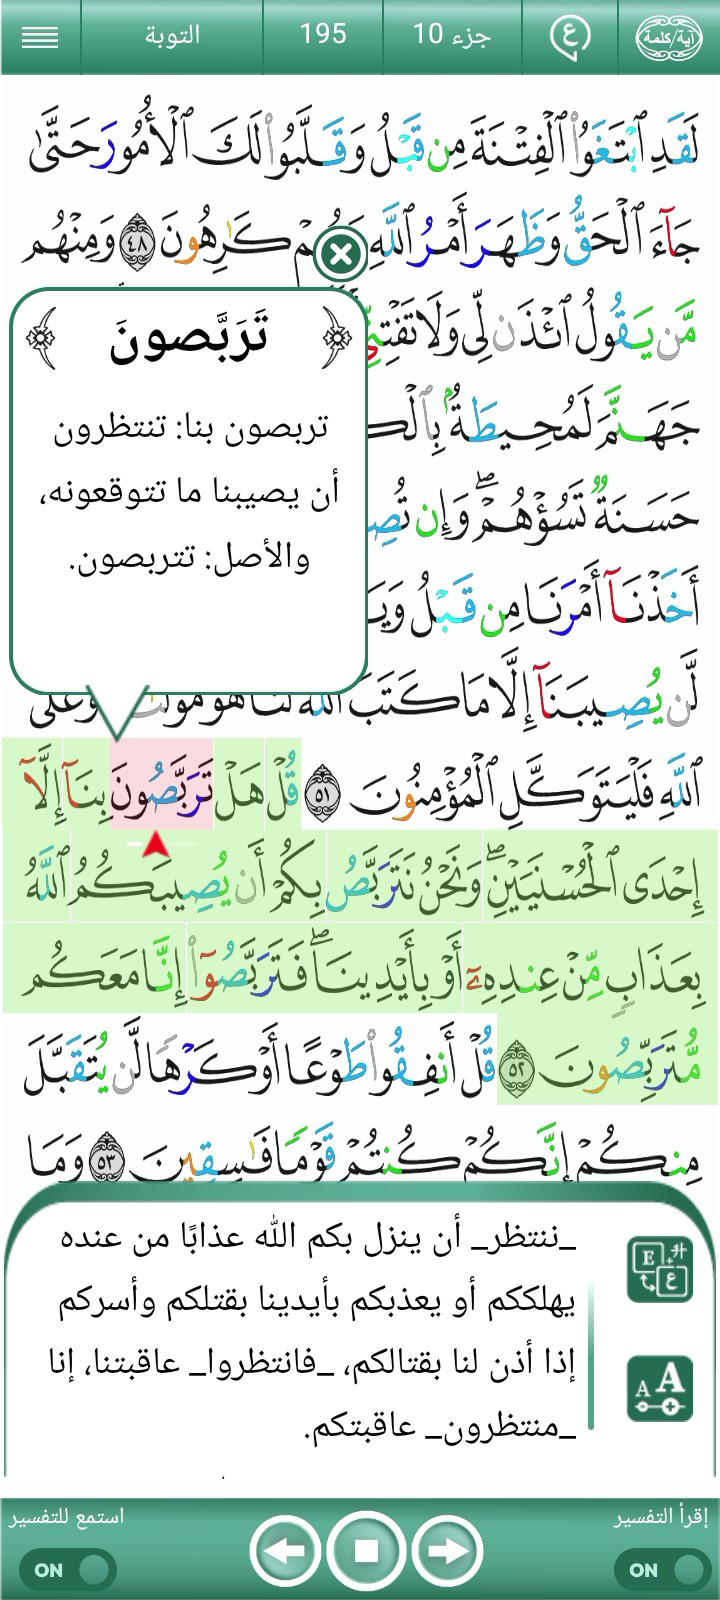 آية/كلمة
ع
جزء 10
195
التوبة
لَقَدِ ٱبْتَغَوُا۟ ٱلْفِتْنَةَ مِن قَبْلُ وَقَلَّبُوا۟ لَكَ ٱلْأُمُورَ حَتَّىٰ
جَآءَ ٱلْحَقُّ وَظَهَرَ أَمْرُ ٱللَّهِ وَهُمْ كَٰرِهُونَ ٤٨ وَمِنْهُم
مَّن يَقُولُ ٱئْذَن لِّى وَلَا تَفْتِنِّى
جَهَنَّمَ لَمُحِيطَةٌۢ
حَسَنَةٌ تَسُؤْهُمْ ۖ وَإِن
أَخَذْنَآ أَمْرَنَا مِن قَبْلُ
لَّن يُصِيبَنَآ إِلَّا مَا كَتَبَ ٱللَّهُ لَنَا هُوَ مَوْلَىٰنَا وَعَلَى
ٱللَّهِ فَلْيَتَوَكَّلِ ٱلْمُؤْمِنُونَ ٥١ قُلْ هَلْ تَرَبَّصُونَ بِنَآ إِلَّآ
إِحْدَى ٱلْحُسْنَيَيْنِ ۖ وَنَحْنُ نَتَرَبَّصُ بِكُمْ أَن يُصِيبَكُمُ ٱللَّهُ
بِعَذَابٍ مِّنْ عِندِهِۦٓ أَوْ بِأَيْدِينَا ۖ فَتَرَبَّصُوٓا۟ إِنَّا مَعَكُم
مُّتَرَبِّصُونَ ٥٢ قُلْ أَنفِقُوا۟ طَوْعًا أَوْ كَرْهًا لَّن يُتَقَبَّلَ
مِنكُمْ إِنَّكُمْ كُنتُمْ قَوْمًا فَٰسِقِينَ ٥٣ وَمَا
﴿ تَرَبَّصونَ ﴾
تربصون بنا: تنتظرون
أن يصيبنا ما تتوقعونه،
والأصل: تتربصون.
_ننتظر_ أن ينزل بكم الله عذابًا من عنده
يهلككم أو يعذبكم بأيدينا بقتلكم وأسركم
إذا أذن لنا بقتالكم، _فانتظروا_ عاقبتنا، إنا
_منتظرون_ عاقبتكم.
E
ع
A A
إقرأ التفسير
استمع للتفسير
ON
ON